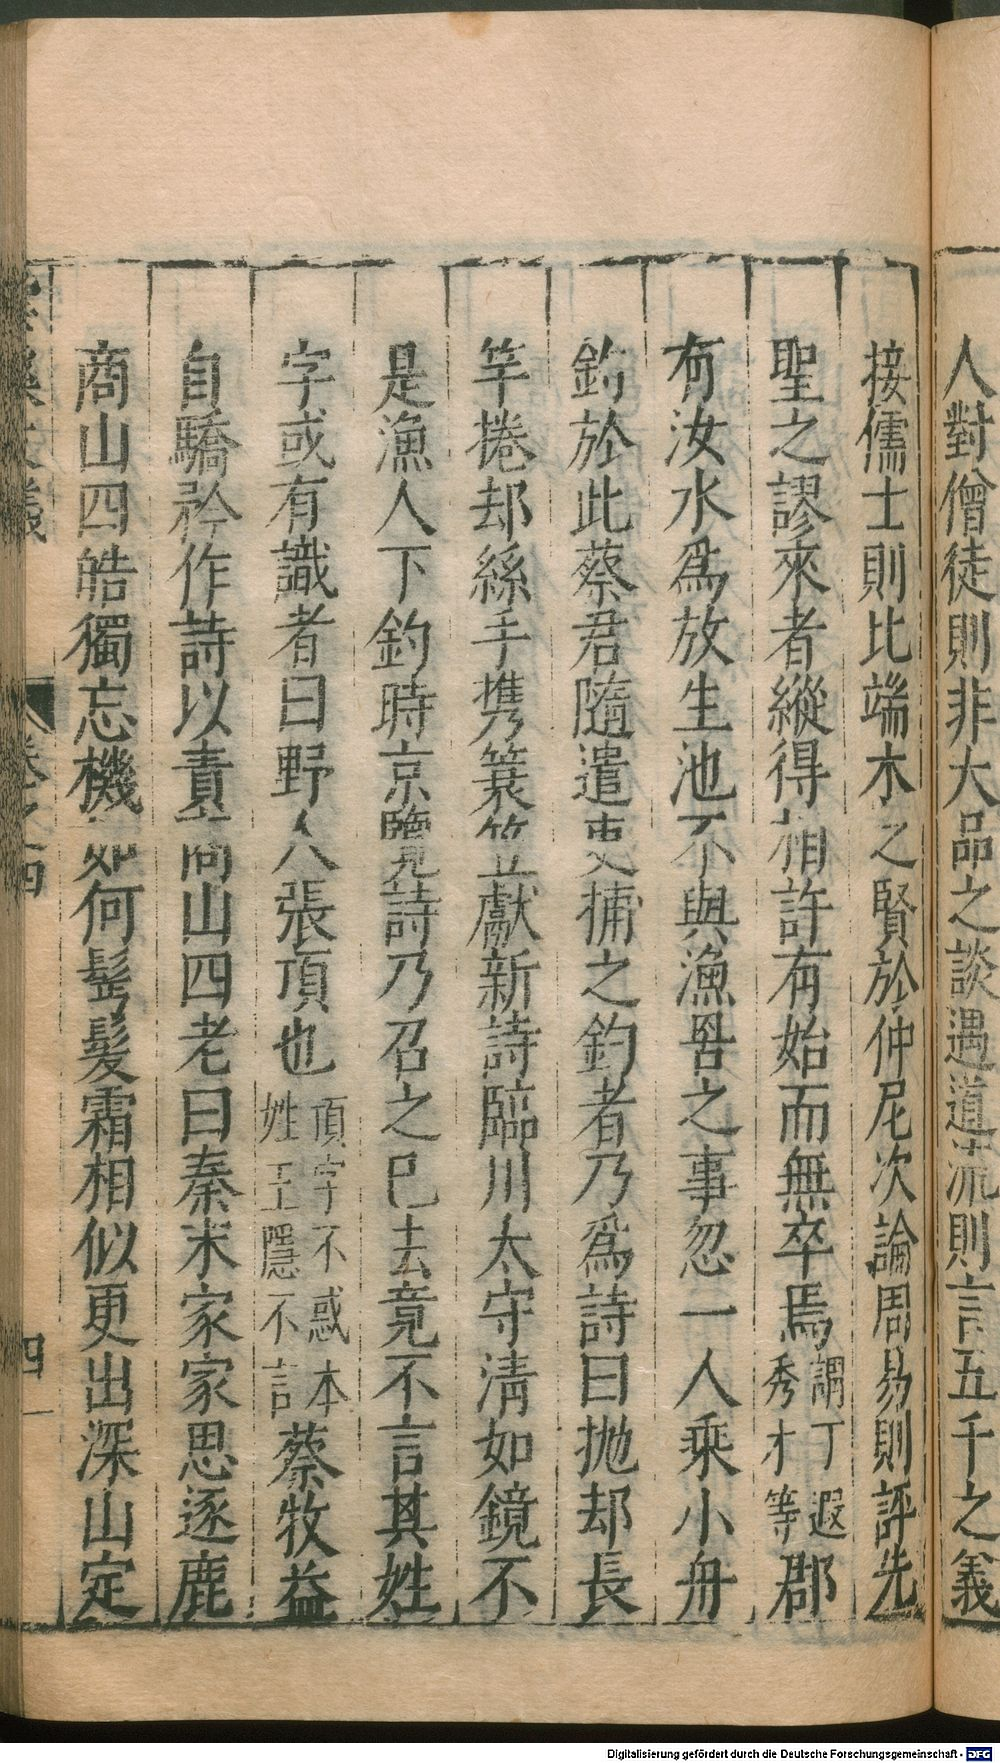 人對僧徒則非大品之談遇道流則言五千之義
接儒士則比端木之賢於仲尼次論周易則評先
聖之謬來者縱得相許有始而無卒焉謂丁遐秀才等郡
有汝水爲放生池不與漁罟之事忽一人乘小舟
釣於此蔡君隨遣吏捕之釣者乃爲詩曰抛却長
竿捲却絲手携簑笠獻新詩臨川太守清如鏡不
是漁人下釣時京覽詩乃召之已去竟不言其姓
字或有識者曰野人張頂也頂字不惑本姓王隱不言蔡牧益
自驕矜作詩以責商山四老曰秦末家家思逐鹿
商山四皓獨忘機如何髩髮霜相似更出深山定
卷之四
四
Digitalisierung gefördert durch die Deutsche Forschungsgemeinschaft - DFG